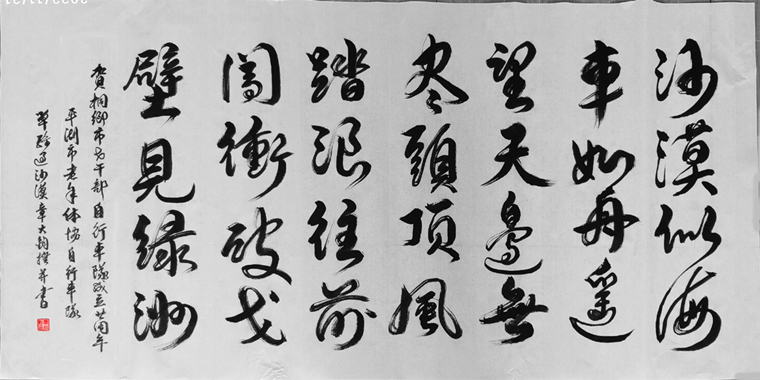 沙漠似海
車如舟遥
望天邊無
盡頭頂風
踏浪往前
闖衝破戈
壁見绿洲
賀桐鄉市老干部自行車隊成立廿周年
平湖市老年体协自行車隊
翠 沙漠章大 撰并書